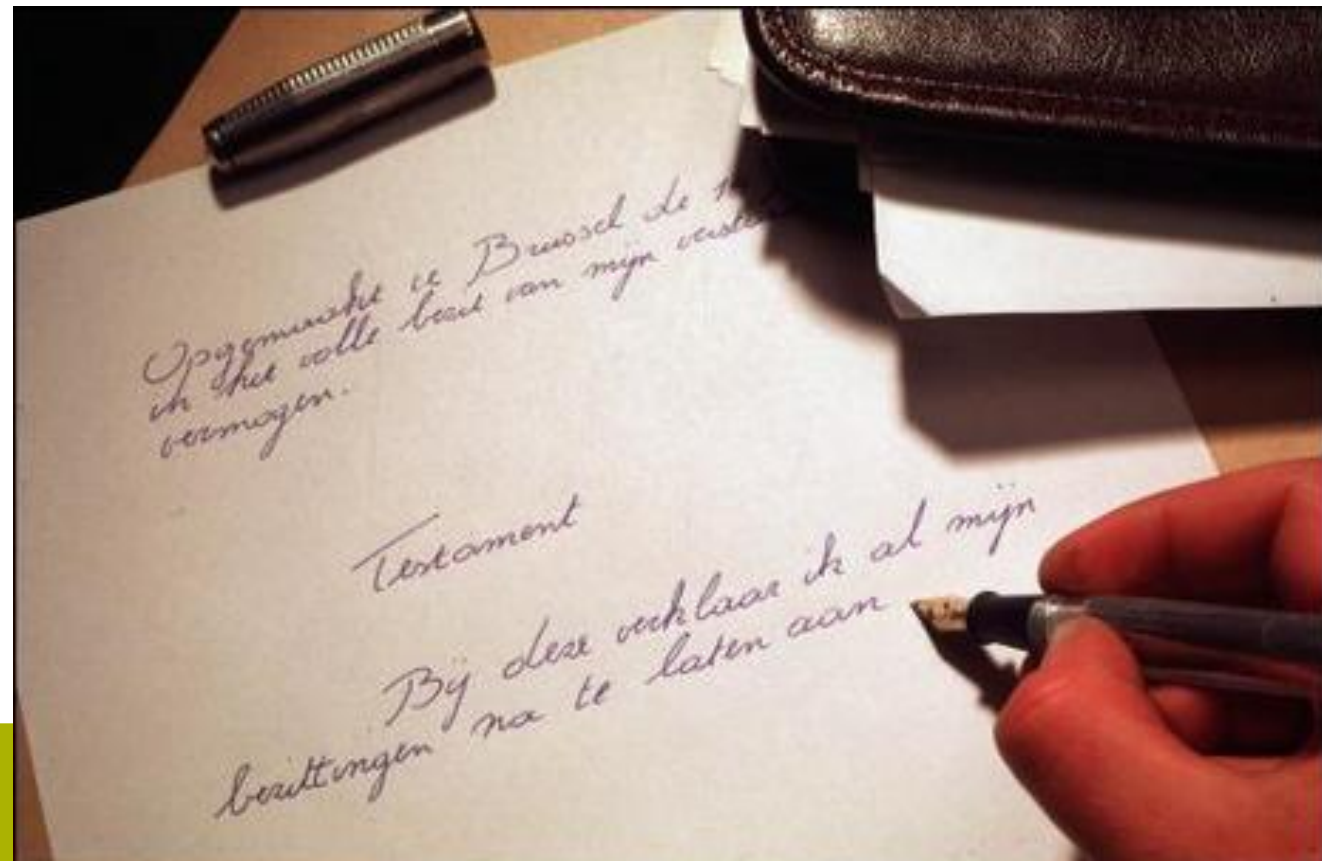 Opgemaakt te Brussel de
in het volle bezit van mijn
vermogen.
Testament
Bij deze verklaar ik al mijn
bezittingen na te laten aan